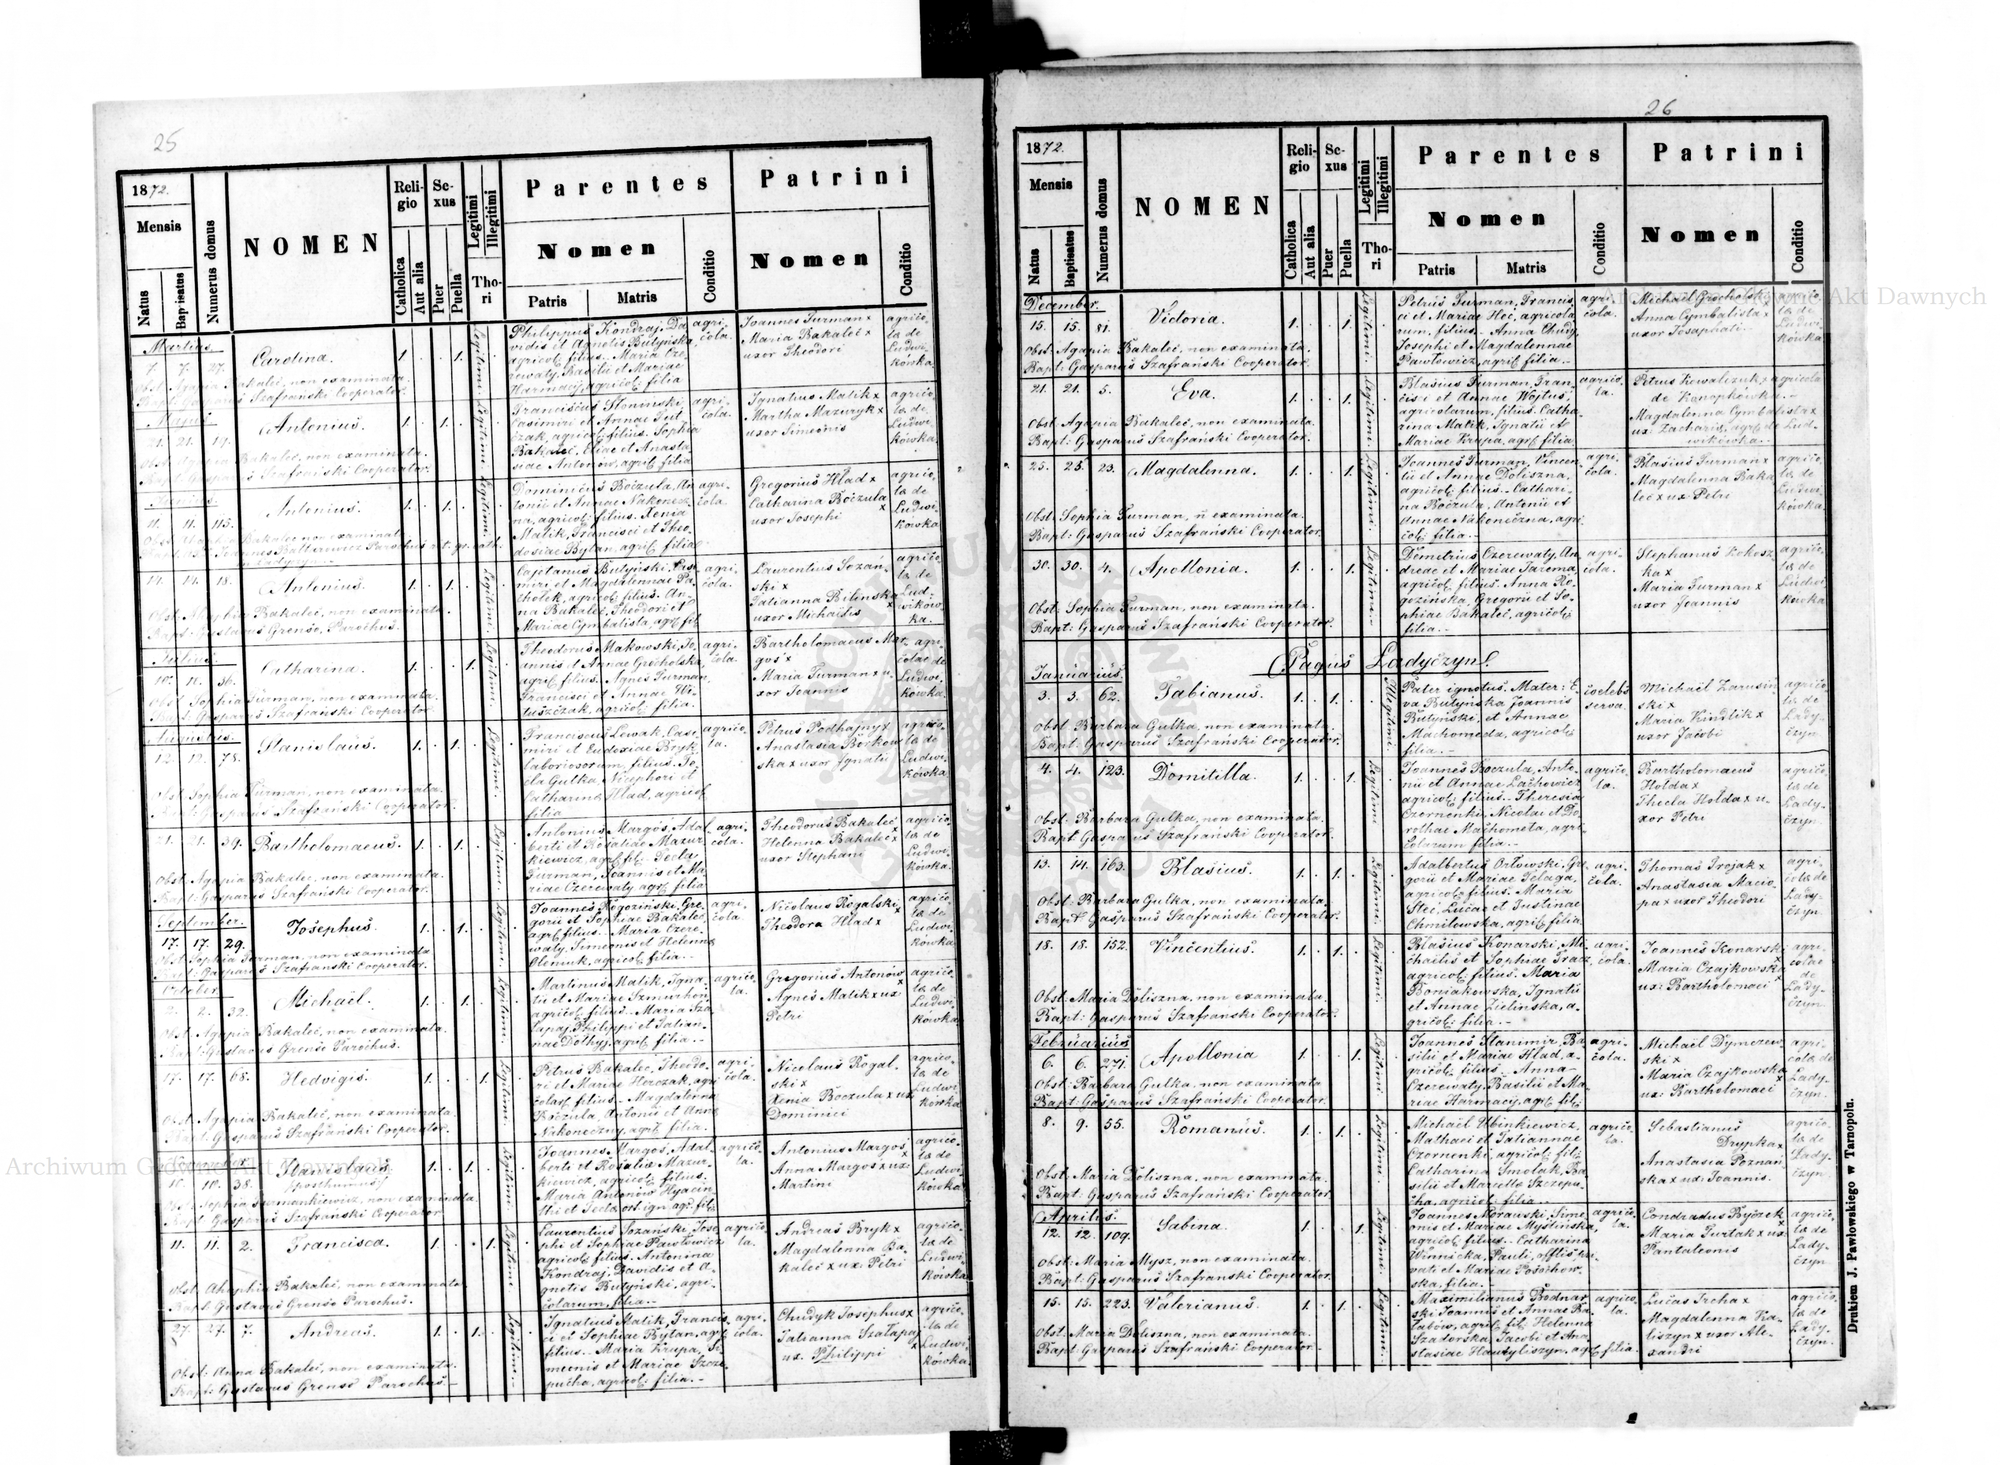 25
1872.
Mensis
Natus
Baptisatus
Numerus domus
NOMEN
Religio
Catholica
Aut alia
Sexus
Puer
Puella
Legitimi
Illegitimi
Thori
Parentes
Nomen
Patris
Matris
Conditio
Patrini
Nomen
Conditio
Martius
7. 7. 27. Carolina. 1. 1.
Obst. Agapia Bakaleć, non examinata.
Bapt. Gasparus Szafrański Cooperator.
Philippus Kondraj, Da-
vidis et Agnetis Butyńska,
agricol. filius. Maria Cze-
rewaty, Basilii et Mariae
Harmacij, agricol. filia
agri-
cola.
Joannes Furman x
Maria Bakaleć x
uxor Theodori
agrico-
lae de
Ludwi-
kówka.
Majus.
21. 21. 19. Antonius. 1. 1.
Bakaleć, non examinata.
Szafrański Cooperator.
Franciscus Słoninski,
Casimiri et Annae
agricol. filius. Sophia
Bakaleć, Eliae et Anasta-
siae Antonów, agricol. filia
agri-
cola.
Ignatius Malik x
Martha Mazuryk x
uxor Simeonis
agrico-
lae de
Ludwi-
kówka.
Junius.
11. 11. 115. Antonius. 1. 1.
Dominicus Boczula, An-
tonii et Annae Nakonecz-
na, agricol. filius. Xenia
Malik, Francisci et Theo-
dosiae Bytan, agricol. filia
agri-
cola.
Gregorius Hład x
Catharina Boczula x
uxor Josephi
agrico-
lae de
Ludwi-
kówka.
14. 14. 18. Antonius. 1. 1.
Bakaleć, non examinata.
Bapt. Gustavus Grensö, Parochus.
Cajetanus Butyński, Casi-
miri et Magdalennae Pa-
chołek, agricol. filius. An-
na Bakaleć, Theodori et
Mariae Cymbalista, agr. fil.
agri-
cola.
Laurentius Łozań-
ski x
Tatianna Bilenska x
uxor Michaelis
agrico-
lae de
Lud-
wików-
ka.
Julius.
10. 11. 36. Catharina. 1. 1.
Obst. Sophia Furman, non examinata.
Bapt. Gasparus Szafrański Cooperator.
Theodorus Makowski, Jo-
annis et Annae Grocholska,
agric. filius. Agnes Furman
Francisci et Annae Wi-
tuszczak, agricol. filia.
agri-
cola.
Bartholomaeus Mar-
gos x
Maria Furman x u-
xor Joannis
agri-
colae de
Ludwi-
kówka.
Augustus.
12. 12. 78. Stanislaus. 1. 1.
Obst. Sophia Furman, non examinata.
Bapt. Gasparus Szafrański Cooperator.
Franciscus Lewak, Casi-
miri et Eudoxiae Bryk,
laboriosorum, filius.
Gulka, Nicephori et
Catharina Hład, agricol.
filia
agrico-
la.
Petrus Podhajny x
Anastasia Borkow-
ska x uxor Ignatii
agrico-
lae de
Ludwi-
kówka.
21. 21. 39. Bartholomaeus. 1. 1.
Obst. Agapia Bakaleć, non examinata.
Bapt. Gasparus Szafrański Cooperator.
Antonius Margos, Adal-
berti et Rosaliae Mazur-
kiewicz, agric. fil. Tecla
Furman, Joannis et Ma-
riae Czerewaty agric. filia
agri-
cola.
Theodorus Bakaleć
Helenna Bakaleć x
uxor Stephani
agrico-
lae de
Ludwi-
kówka.
September.
17. 17. 29. Josephus. 1. 1.
Obst. Sophia Furman, non examinata
Bapt. Gasparus Szafrański Cooperator.
Joannes Rogoziński, Gre-
gorii et Sophiae Bakaleć,
agric. filius. Maria Czere-
waty, Simeonis et Helenna
Oleniuk, agricol. filia.
agri-
cola.
Nicolaus Rogalski x
Theodora Hład x
agrico-
lae de
Ludwi-
kówka.
October.
2. 2. 32. Michaël. 1. 1.
Obst. Agapia Bakaleć, non examinata.
Bapt. Gustavus Grensö Parochus.
Martinus Malik, Igna-
tii et Mariae
agricol. filius. Maria Sza-
łapaj, Philippi et Tatian-
nae Dothyj, agric. filia.
agrico-
la.
Gregorius Antonów x
Agnes Malik x ux:
Petri
agrico-
lae de
Ludwi-
kówka.
17. 17. 68. Hedvigis. 1. 1.
Obst. Agapia Bakaleć, non examinata.
Bapt. Gasparus Szafrański Cooperator.
Petrus Bakaleć, Theodo-
ri et Mariae Herczak, agri-
colar. filius. Magdalenna
Boczula, Antonii et Anna
Nakoneczny, agric. filia.
agri-
cola.
Nicolaus Rogal-
ski x
Xenia Boczula x ux:
Dominici
agrico-
lae de
Ludwi-
kówka
10. 10. 38. Stanislaus. 1. 1.
(posthumus)
non examinata.
Bapt. Gasparus Szafrański Cooperator
Joannes Margos, Adal-
berti et Rosaliae Mazur-
kiewicz, agricol. filius.
Maria Antonów Hyacin-
thi et Tecla ort. ign. agr. filia
agrico-
la.
Antonius Margos x
Anna Margos x ux:
Martini
agrico-
lae de
Ludwi-
kówka.
11. 11. 2. Francisca. 1. 1.
Bakaleć, non examinata.
Bapt. Gustavus Grensö Parochus.
Laurentius Łozański, Jose-
phi et Sophiae Pawłowicz
agricol. filius. Antonina
Kondraj, Davidis et A-
gnetis Butyński, agri-
colarum, filia.
agrico-
la.
Andreas Bryk x
Magdalenna Ba-
kaleć x ux: Petri
agrico-
lae de
Ludwi-
kówka.
27. 27. 7. Andreas. 1. 1.
Obst. Anna Bakaleć, non examinata.
Bapt. Gustavus Grensö Parochus.
Ignatius Malik, Francis-
ci et Sophiae Bytan, agric.
filius. Maria Krupa, Si-
meonis et Mariae Szcze-
pucha, agricol. filia.
agri-
cola.
Chudyk Josephus x
Tatianna Szałapaj x
ux. Philippi
agrico-
lae de
Ludwi-
kówka.
26
1872.
Mensis
Natus
Baptisatus
Numerus domus
NOMEN
Religio
Catholica
Aut alia
Sexus
Puer
Puella
Legitimi
Illegitimi
Thori
Parentes
Nomen
Patris
Matris
Conditio
Patrini
Nomen
Conditio
December.
15. 15. 81. Victoria. 1. 1.
Obst. Agapia Bakaleć, non examinata.
Bapt: Gasparus Szafrański Cooperator.
Petrus Furman, Francis-
ci et Mariae Heć, agricola-
rum, filius. Anna Chudy,
Josephi et Magdalennae
Pawłowicz, agric. filia.
agri-
cola.
Michaël Grocholski
Anna Cymbalista x
uxor Josaphati.
Ludwi-
kówka.
21. 21. 5. Eva. 1. 1.
Obst: Agapia Bakaleć, non examinata.
Bapt: Gasparus Szafrański Cooperator.
Blasius Furman, Fran-
cisci et Annae Wojtus,
agricolarum, filius. Catha-
rina Malik, Ignatii et
Mariae Krupa, agric. filia.
agrico-
la.
Petrus Kowalczuk, agricola
de Konopkówka.
Magdalenna Cymbalista x
ux. Zachariae, agric. de Lud-
wikówka.
25. 25. 23. Magdalenna. 1. 1.
Obst: Sophia Furman, n. examinata.
Bapt: Gasparus Szafrański Cooperator.
Joannes Furman, Vincen-
tii et Annae Doliszna,
agricol. filius. Cathari-
na Boczula, Antonii et
Annae Nakoneczna, agri-
col. filia.
agri-
cola.
Blasius Furman x
Magdalenna Baka-
leć x ux: Petri
agrico-
lae de
Ludwi-
kówka.
30. 30. 4. Apollonia. 1. 1.
Obst: Sophia Furman, non examinata.
Bapt: Gasparus Szafrański Cooperator.
Demetrius Czerewaty, An-
dreae et Mariae Jarema,
agricol. filius. Anna Ro-
gozińska, Gregorii et So-
phiae Bakaleć, agricol.
filia.
agri-
cola.
Stephanus Kokosz-
ka x
Maria Furman x
uxor Joannis
agrico-
lae de
Ludwi-
kówka.
Pagus Ladyczyn.
Januarius.
3. 3. 62. Fabianus. 1. 1. Illegitimi
Obst. Barbara Gulka, non examinata
Bapt. Gasparus Szafrański Cooperator.
Pater ignotus. Mater: E-
va Butyńska Joannis
Butyński, et Annae
Machomeda, agricol.
filia.
coelebs
serva.
Michaël Zarusin-
ski x
Maria Kindlik x
uxor Jacobi
agrico-
lae de
Lady-
czyn
4. 4. 123. Domitilla. 1. 1.
Obst. Barbara Gulka, non examinata.
Bapt. Gasparus Szafrański Cooperator.
Joannes Boczula, Anto-
nii et Annae Lachowicz
agricol. filius. Theresia
Czornenki, Nicolai et Do-
rothae Machometa, agri-
colarum filia.
agrico-
la.
Bartholomaeus
Hołda x
Thecla Hołda x u-
xor Petri
agrico-
lae de
Lady-
czyn.
13. 14. 163. Blasius. 1. 1.
Obst: Barbara Gulka, non examinata.
Bapt. Gasparus Szafrański Cooperator.
Adalbertus Orłowski, Gre-
gorii et Mariae Pelaga,
agricol. filius. Maria
Steć, Lucae et Justinae
Chmilowska, agric. filia.
agri-
cola.
Thomas Trojak x
Anastasia Macio-
pa x uxor Theodori
agri-
colae de
Lady-
czyn.
18. 18. 152. Vincentius. 1. 1.
Obst: Maria Doliszna, non examinata.
Bapt: Gasparus Szafrański Cooperator.
Blasius Konarski, Mi-
chaelis et Sophiae Tracz
agricol. filius. Maria
Boniakowska, Ignatii
et Annae Zielinska, a-
gricol. filia.
agri-
cola.
Joannes Konarski x
Maria Czajkowska x
ux: Bartholomaei
agri-
colae
de
Lady-
czyn.
Februarius
6. 6. 271. Apollonia 1. 1.
Obst: Barbara Gulka, non examinata
Bapt: Gasparus Szafrański Cooperator.
Joannes Stanimir, Ba-
silii et Mariae Hład, a-
gricol. filius. Anna
Czerewaty, Basilii et Ma-
riae Harmacij, agric. filia
agri-
cola.
Michaël Dymczew-
ski x
Maria Czajkowska x
ux: Bartholomaei
agri-
colae de
Lady-
czyn.
8. 9. 55. Romanus. 1. 1.
Obst: Maria Doliszna, non examinata.
Bapt: Gasparus Szafrański Cooperator.
Michaël Zbinkiewicz,
Mathaei et Tatiannae
Czornenki, agricol. fil.
Catharina Smolak, Ba-
silii et Marcella Szczepu-
cha, agricol. filia.
agrico-
la.
Sebastianus
Drypka x
Anastasia Poznań-
ska x ux: Joannis.
agrico-
lae de
Lady-
czyn.
Aprilis.
12. 12. 109. Sabina. 1. 1.
Obst: Maria Mysz, non examinata.
Bapt: Gasparus Szafranski Cooperator.
Joannes Morawski, Sime-
onis et Mariae Myslinska,
agricol. filius. Catharina
Winnicka, Pauli,
et Mariae
ska, filia.
agrico-
la.
Condradus Byczek x
Maria Furtak x ux:
Pantaleonis
agrico-
lae de
Lady-
czyn
15. 15. 223. Valerianus. 1. 1.
Obst: Maria Doliszna, non examinata.
Bapt: Gasparus Szafrański Cooperator.
Maximilianus Bodnar-
ski Joannis et Annae Ba-
lubów, agric. fil. Helenna
Szadorska, Jacobi et Ana-
stasiae Hawtyliszyn, agr. filia.
agrico-
la.
Lucas Ircha x
Magdalenna Ka-
liszyn x uxor Ale-
xandri
agrico-
lae de
Lady-
czyn.
Drukiem J. Pawłowskiego w Tarnopolu.
Archiwum Główne Akt Dawnych
Archiwum Główne Akt Dawnych